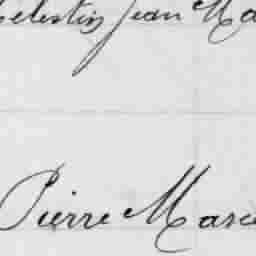 Célestin Jean Ma
Pierre Marce